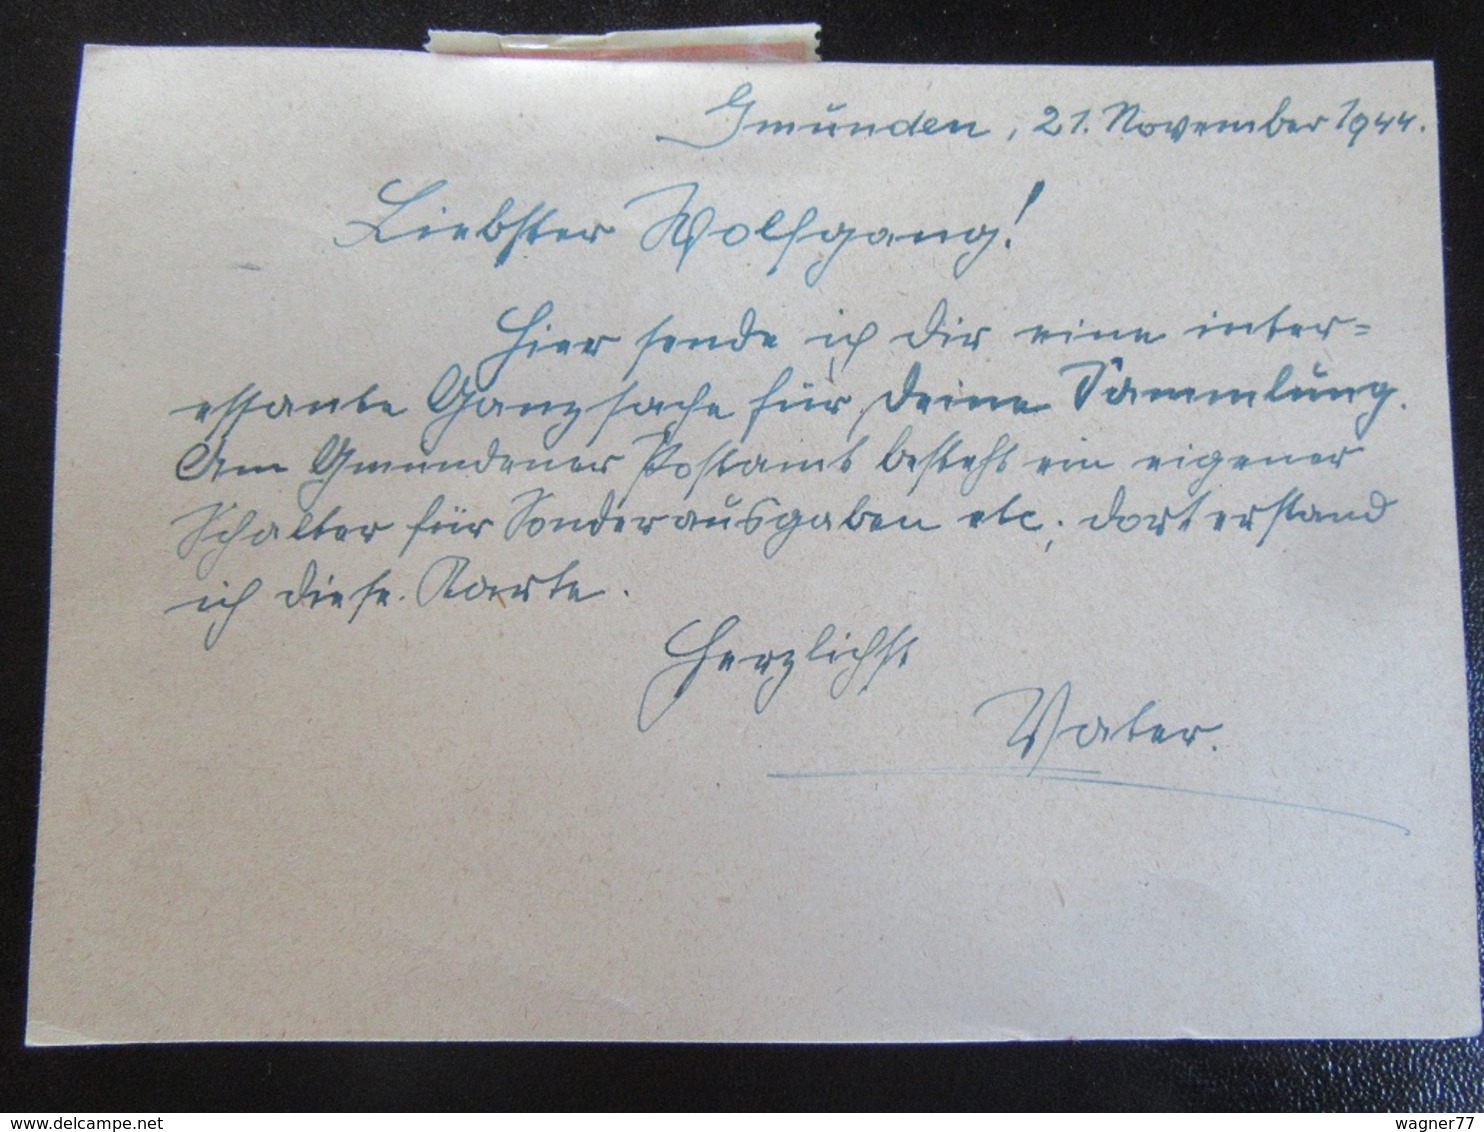 Gmünden, 21. November 1944.
Liebster Wolfgang!
Hier sende ich Dir eine inter=
essante Ganzsache für Deine Sammlung.
Am Gmundener Postamt besteht ein eigener
Schalter für Sonderausgaben etc; dort erstand
ich diese Karte.
Herzlichst
Vater.
delcampe.net
wagner77